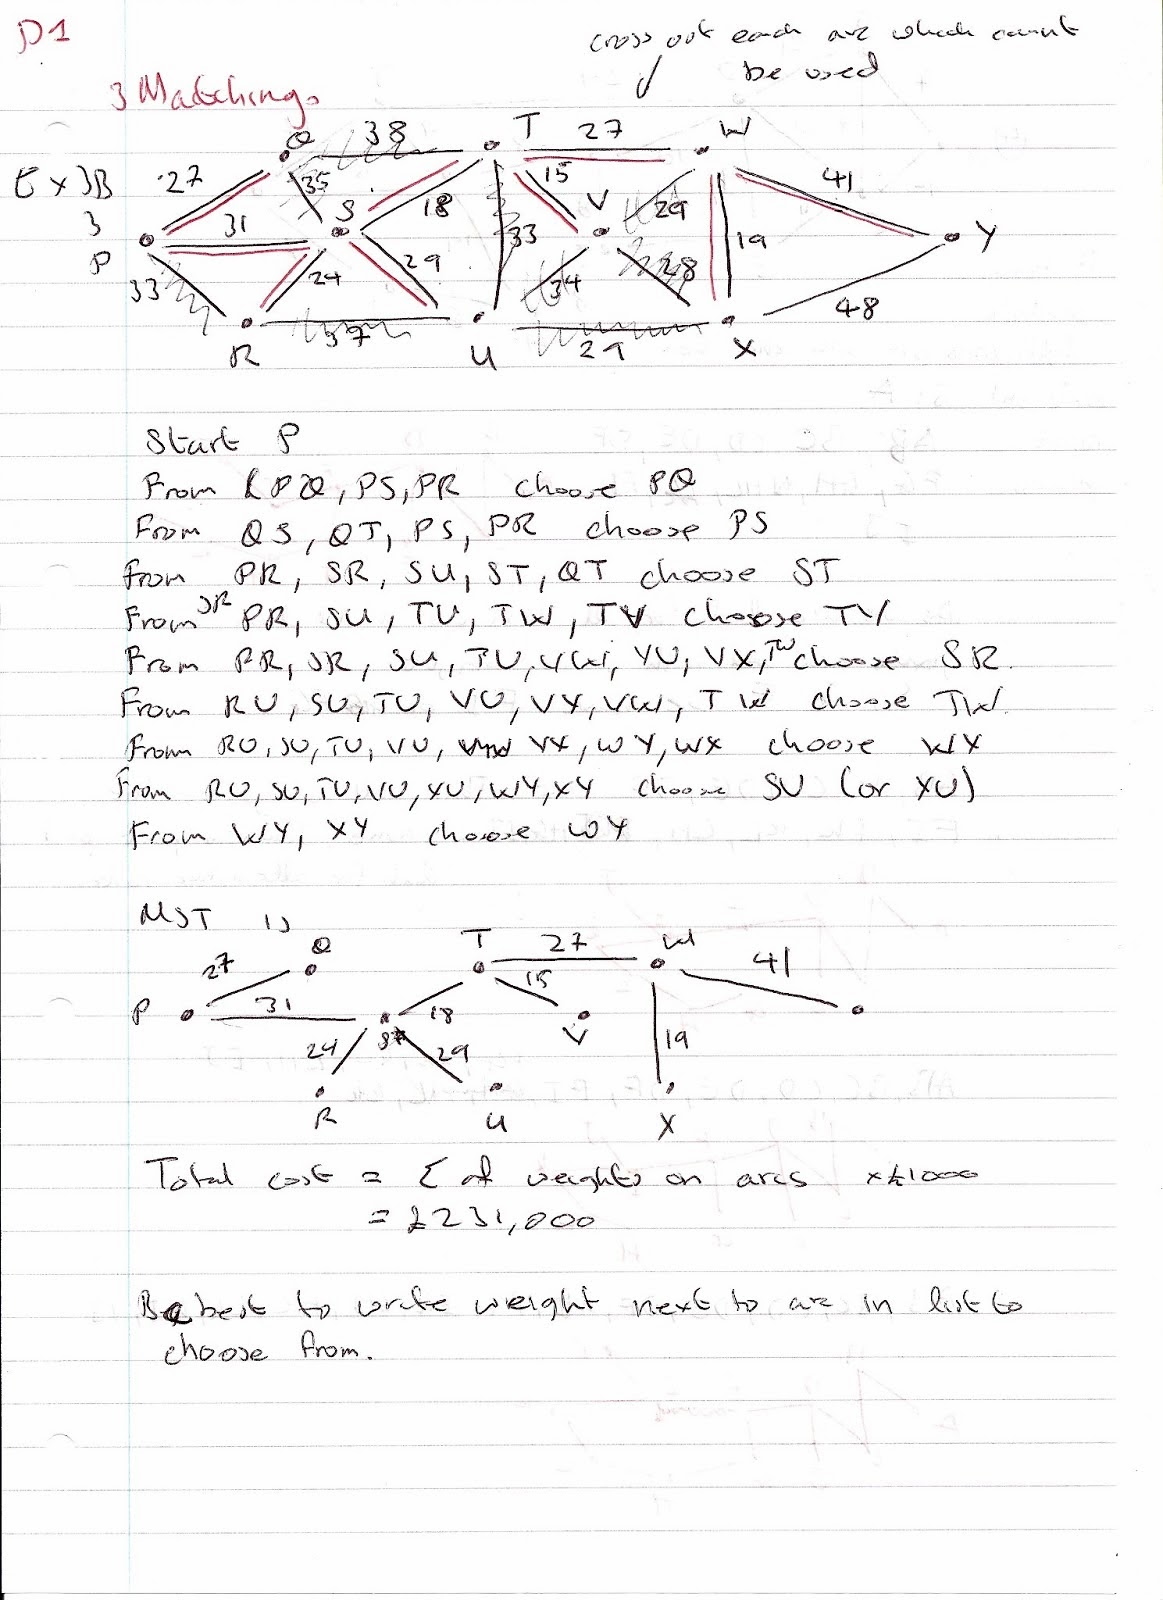 D1
cross out each arc which cannot
be used
3 Matchings
Ex 3B
3
Q 38 T 27 W
27 35 15 41
31 S 18 V 29
P 33 19 Y
33 24 29 34 28 48
R 37 U 29 X
Start P
From PQ, PS, PR choose PQ
From QS, QT, PS, PR choose PS
From PR, SR, SU, ST, QT choose ST
From SR PR, SU, TU, TW, TV choose TV
From PR, SR, SU, TU, VW, VU, VX, TW choose SR.
From RU, SU, TU, VU, VX, VW, TW choose TW.
From RU, SU, TU, VU, VX, WY, WX choose WX
From RU, SU, TU, VU, XU, WY, XY choose SU (or XU)
From WY, XY choose WY
MST is
Q T 27 W
27 15 41
P 31 18
S V
24 29 19
R U X
Total cost = Σ of weights on arcs x £1000
= £231,000
best to write weight next to arc in list to
choose from.